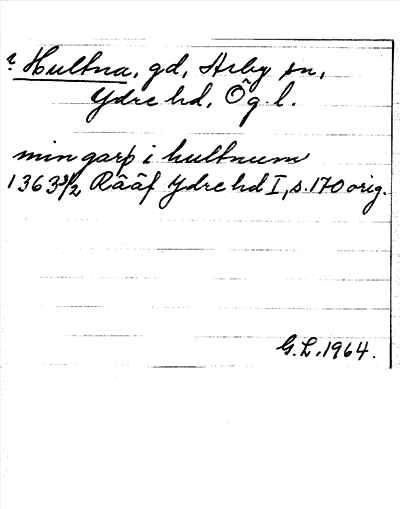 ? Hultna, gd, Asby sn,
Ydre hd, Ög.l.
min garþ i hultnum
1363 3/2 Rääf Ydre hd I, s.170 orig.
G.L.1964.